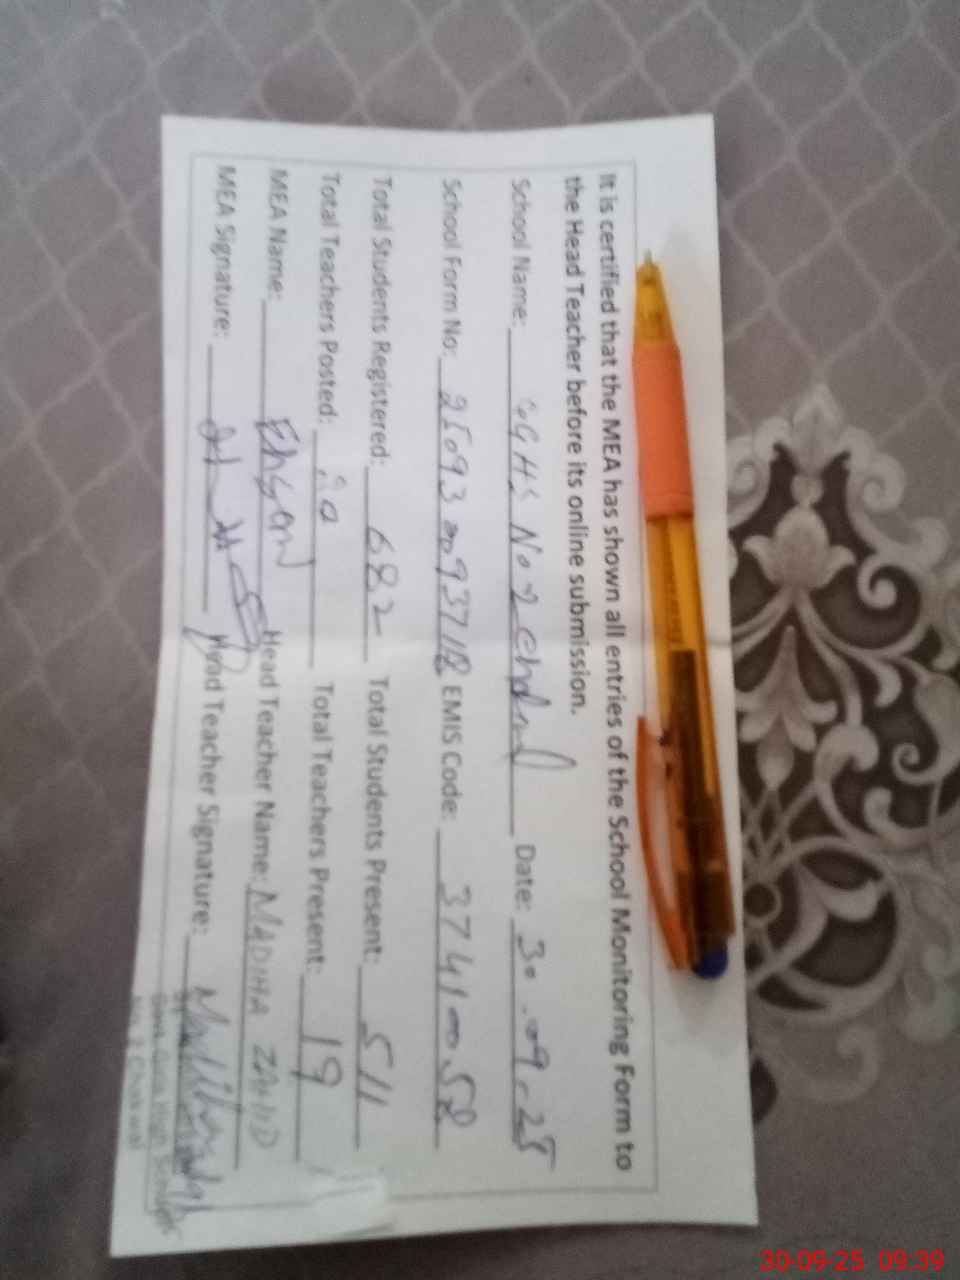 It is certified that the MEA has shown all entries of the School Monitoring Form to
the Head Teacher before its online submission.
School Name: GGHS No 2 Date: 30.09.25
School Form No: EMIS Code:
Total Students Registered: 682 Total Students Present: 511
Total Teachers Posted: Total Teachers Present: 19
MEA Name: Head Teacher Name: MADIHA ZAHID
MEA Signature: Head Teacher Signature:
Govt. Girls High School
No. 2 Chakwal
30-09-25 09:39